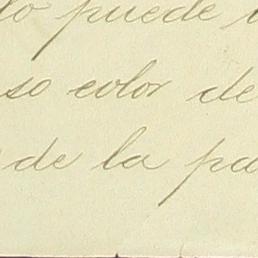 lo puede
so color de
de la pa